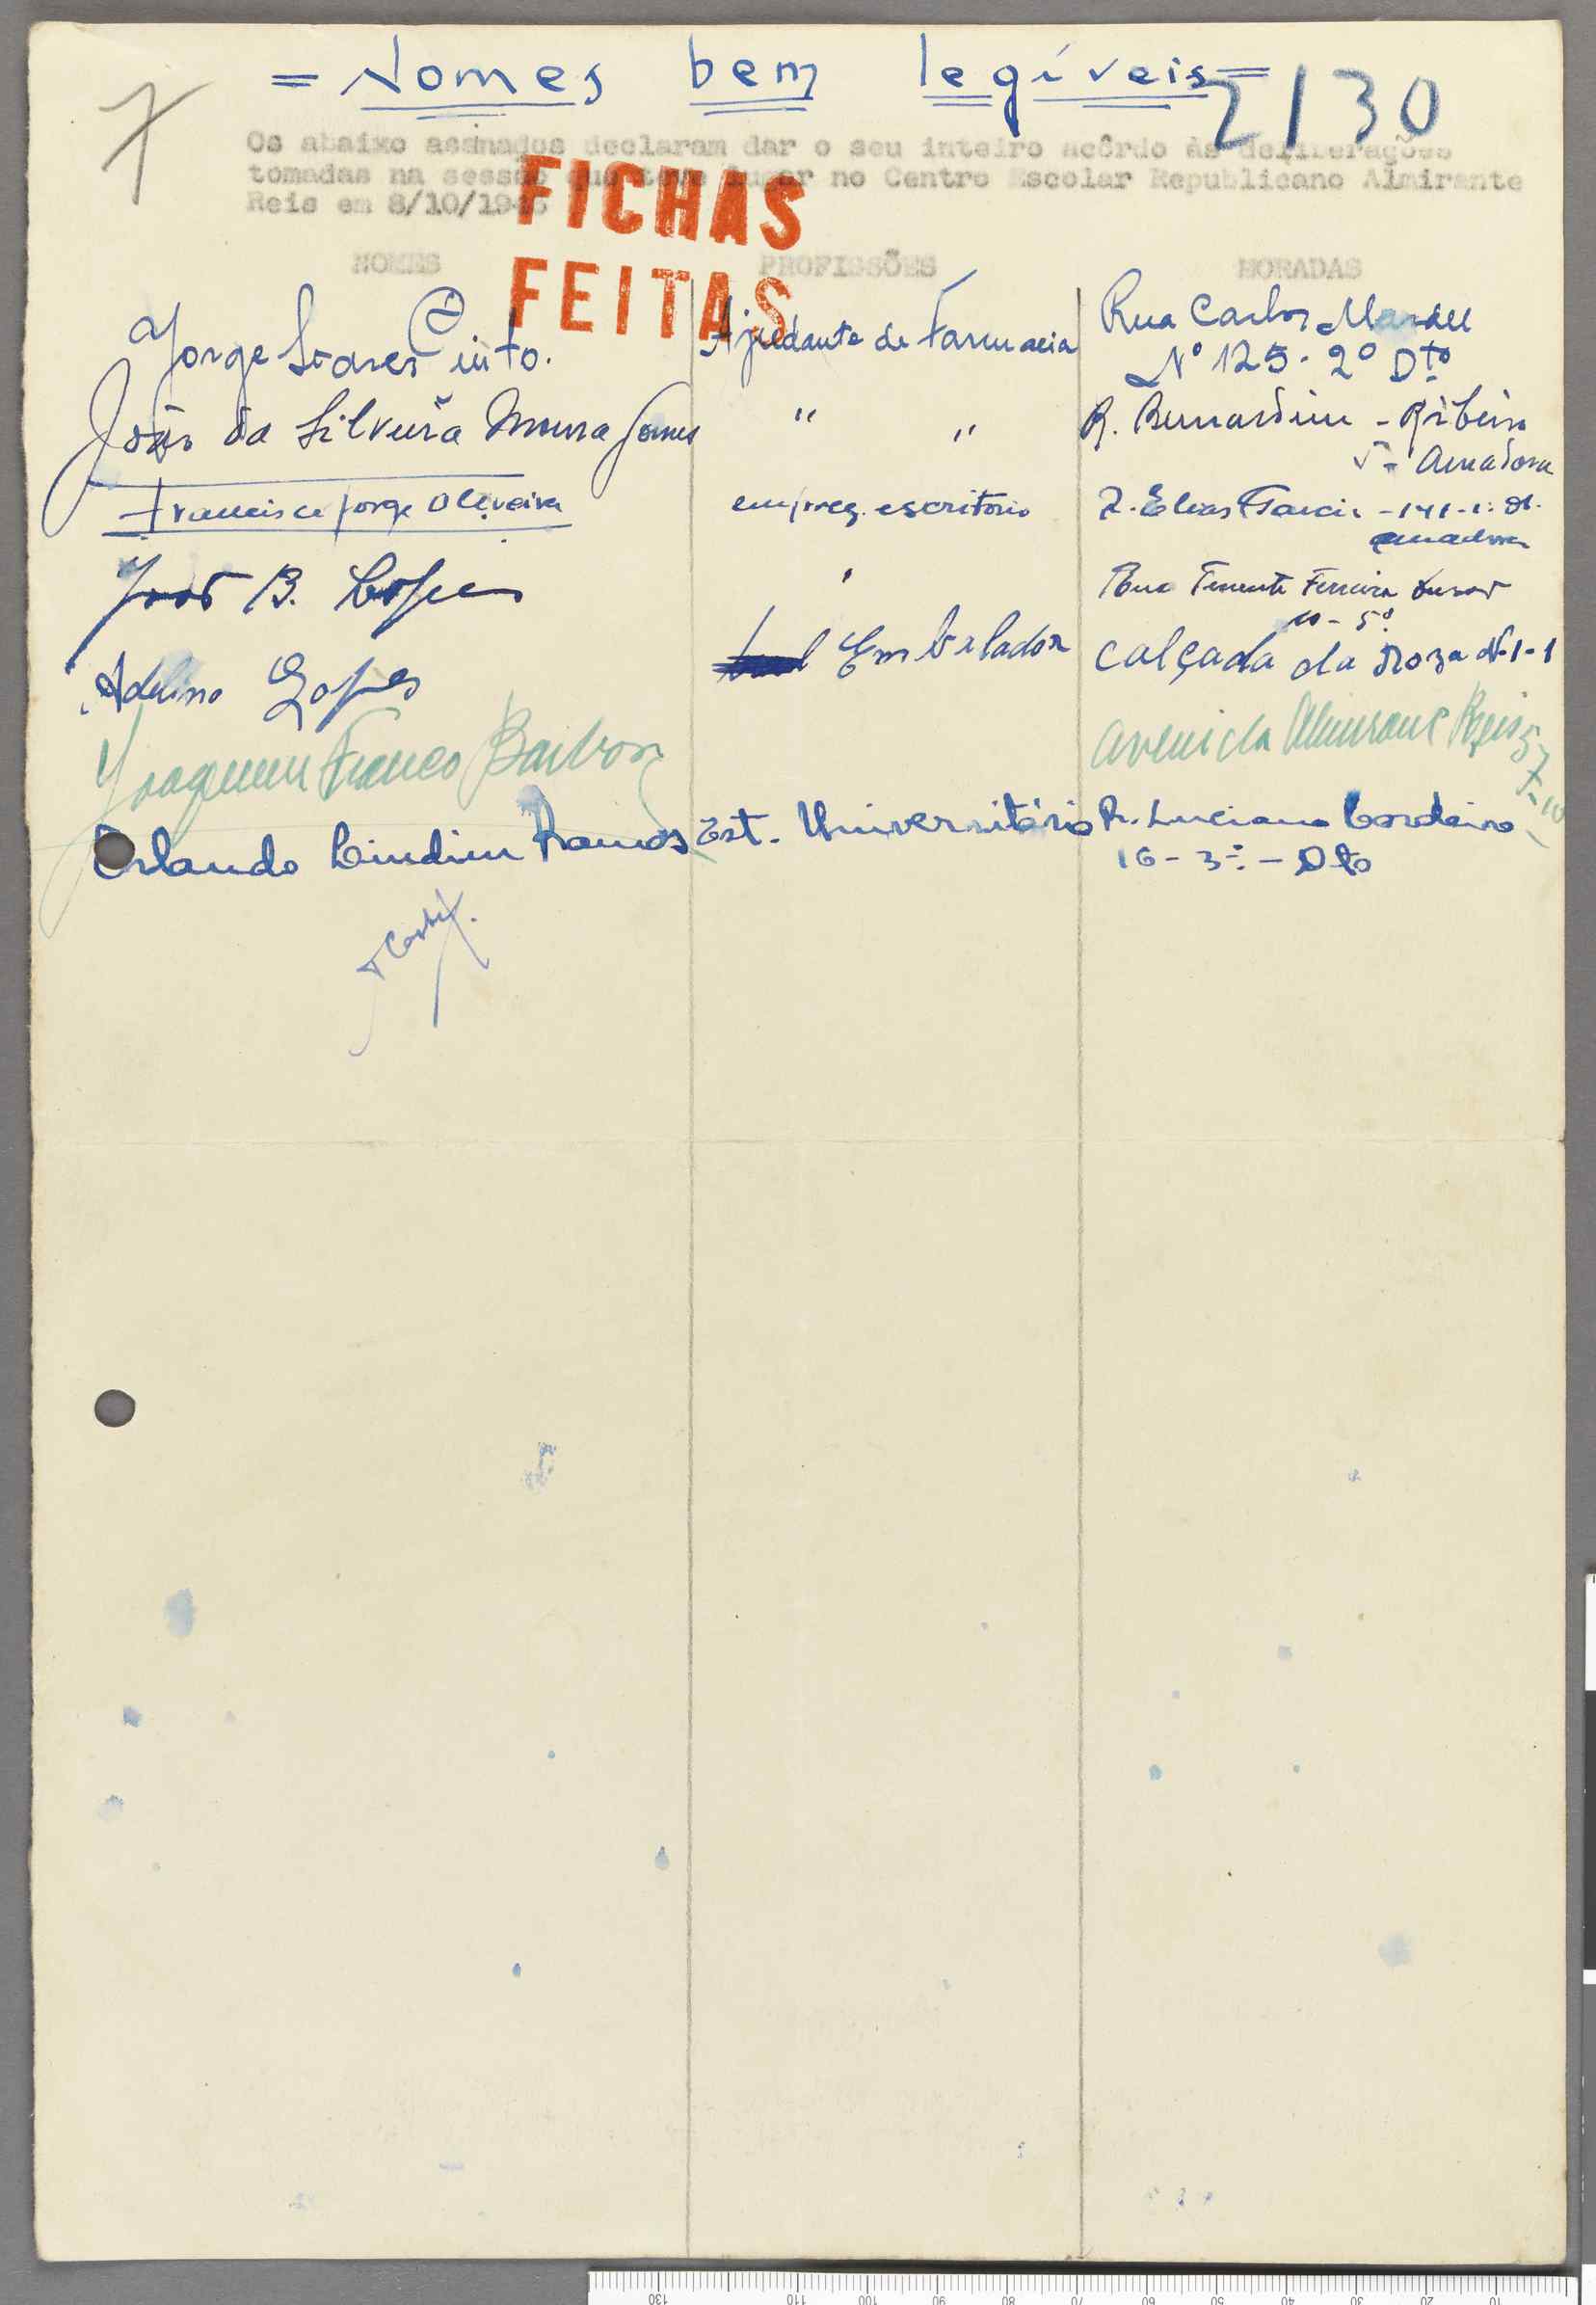 = Nomes bem legíveis =
2130
7
Os abaixo assinados declaram dar o seu inteiro acôrdo às deliberações
tomadas na sessão que teve lugar no Centro Escolar Republicano Almirante
Reis em 8/10/1945
FICHAS
FEITAS
NOMES PROFISSÕES MORADAS
Jorge Soares Pinto. Ajudante de Farmacia Rua Carlos Mardel
Nº 125 - 2º Dto
João da Silveira Moura Gomes " " R. Bernardim - Ribeiro
5 - Amadora
Francisco Jorge Oliveira empreg. escritorio R. Elias Garcia - 141-1º
Amadora
José B. Lopes " Rua Tenente Ferreira Durão
10 - 5º
Adelino Lopes Embalador calçada da
Joaquim Franco Barbosa Avenida Almirante Reis 57
Orlando Lindim Ramos Est. Universitário R. Luciano Cordeiro
16 - 3º - Dto